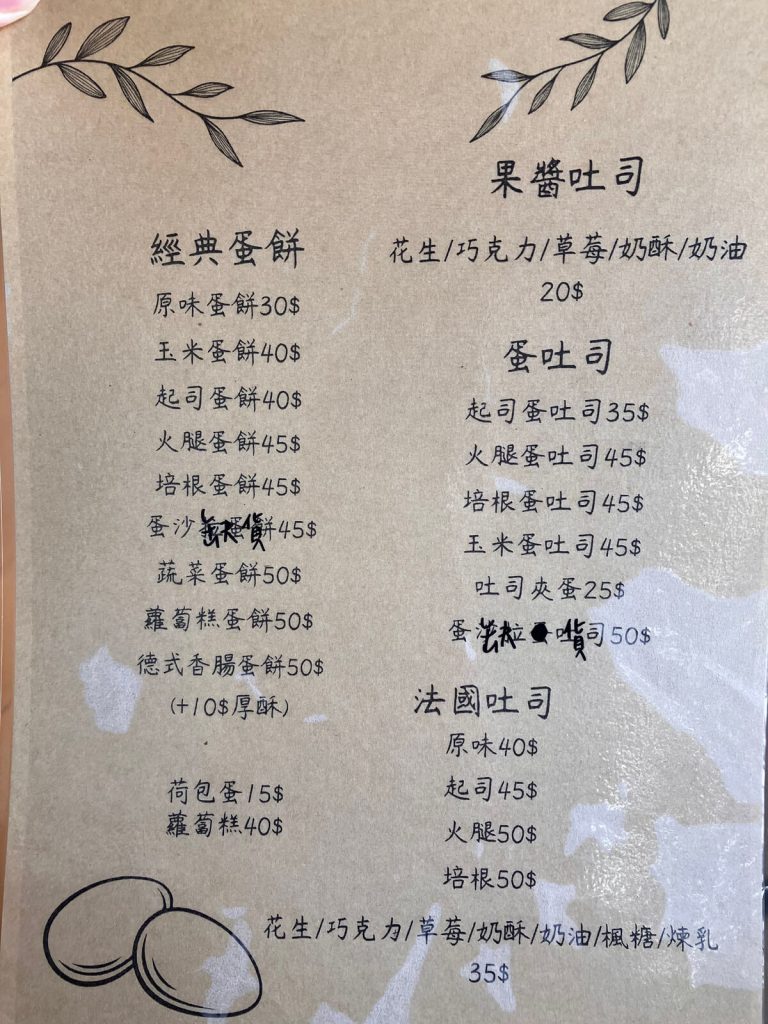 經典蛋餅
原味蛋餅30$
玉米蛋餅40$
起司蛋餅40$
火腿蛋餅45$
培根蛋餅45$
蛋沙 缺貨 餅45$
蔬菜蛋餅50$
蘿蔔糕蛋餅50$
德式香腸蛋餅50$
(+10$厚酥)
荷包蛋15$
蘿蔔糕40$
果醬吐司
花生/巧克力/草莓/奶酥/奶油
20$
蛋吐司
起司蛋吐司35$
火腿蛋吐司45$
培根蛋吐司45$
玉米蛋吐司45$
吐司夾蛋25$
蛋 缺貨 司50$
法國吐司
原味40$
起司45$
火腿50$
培根50$
花生/巧克力/草莓/奶酥/奶油/楓糖/煉乳
35$